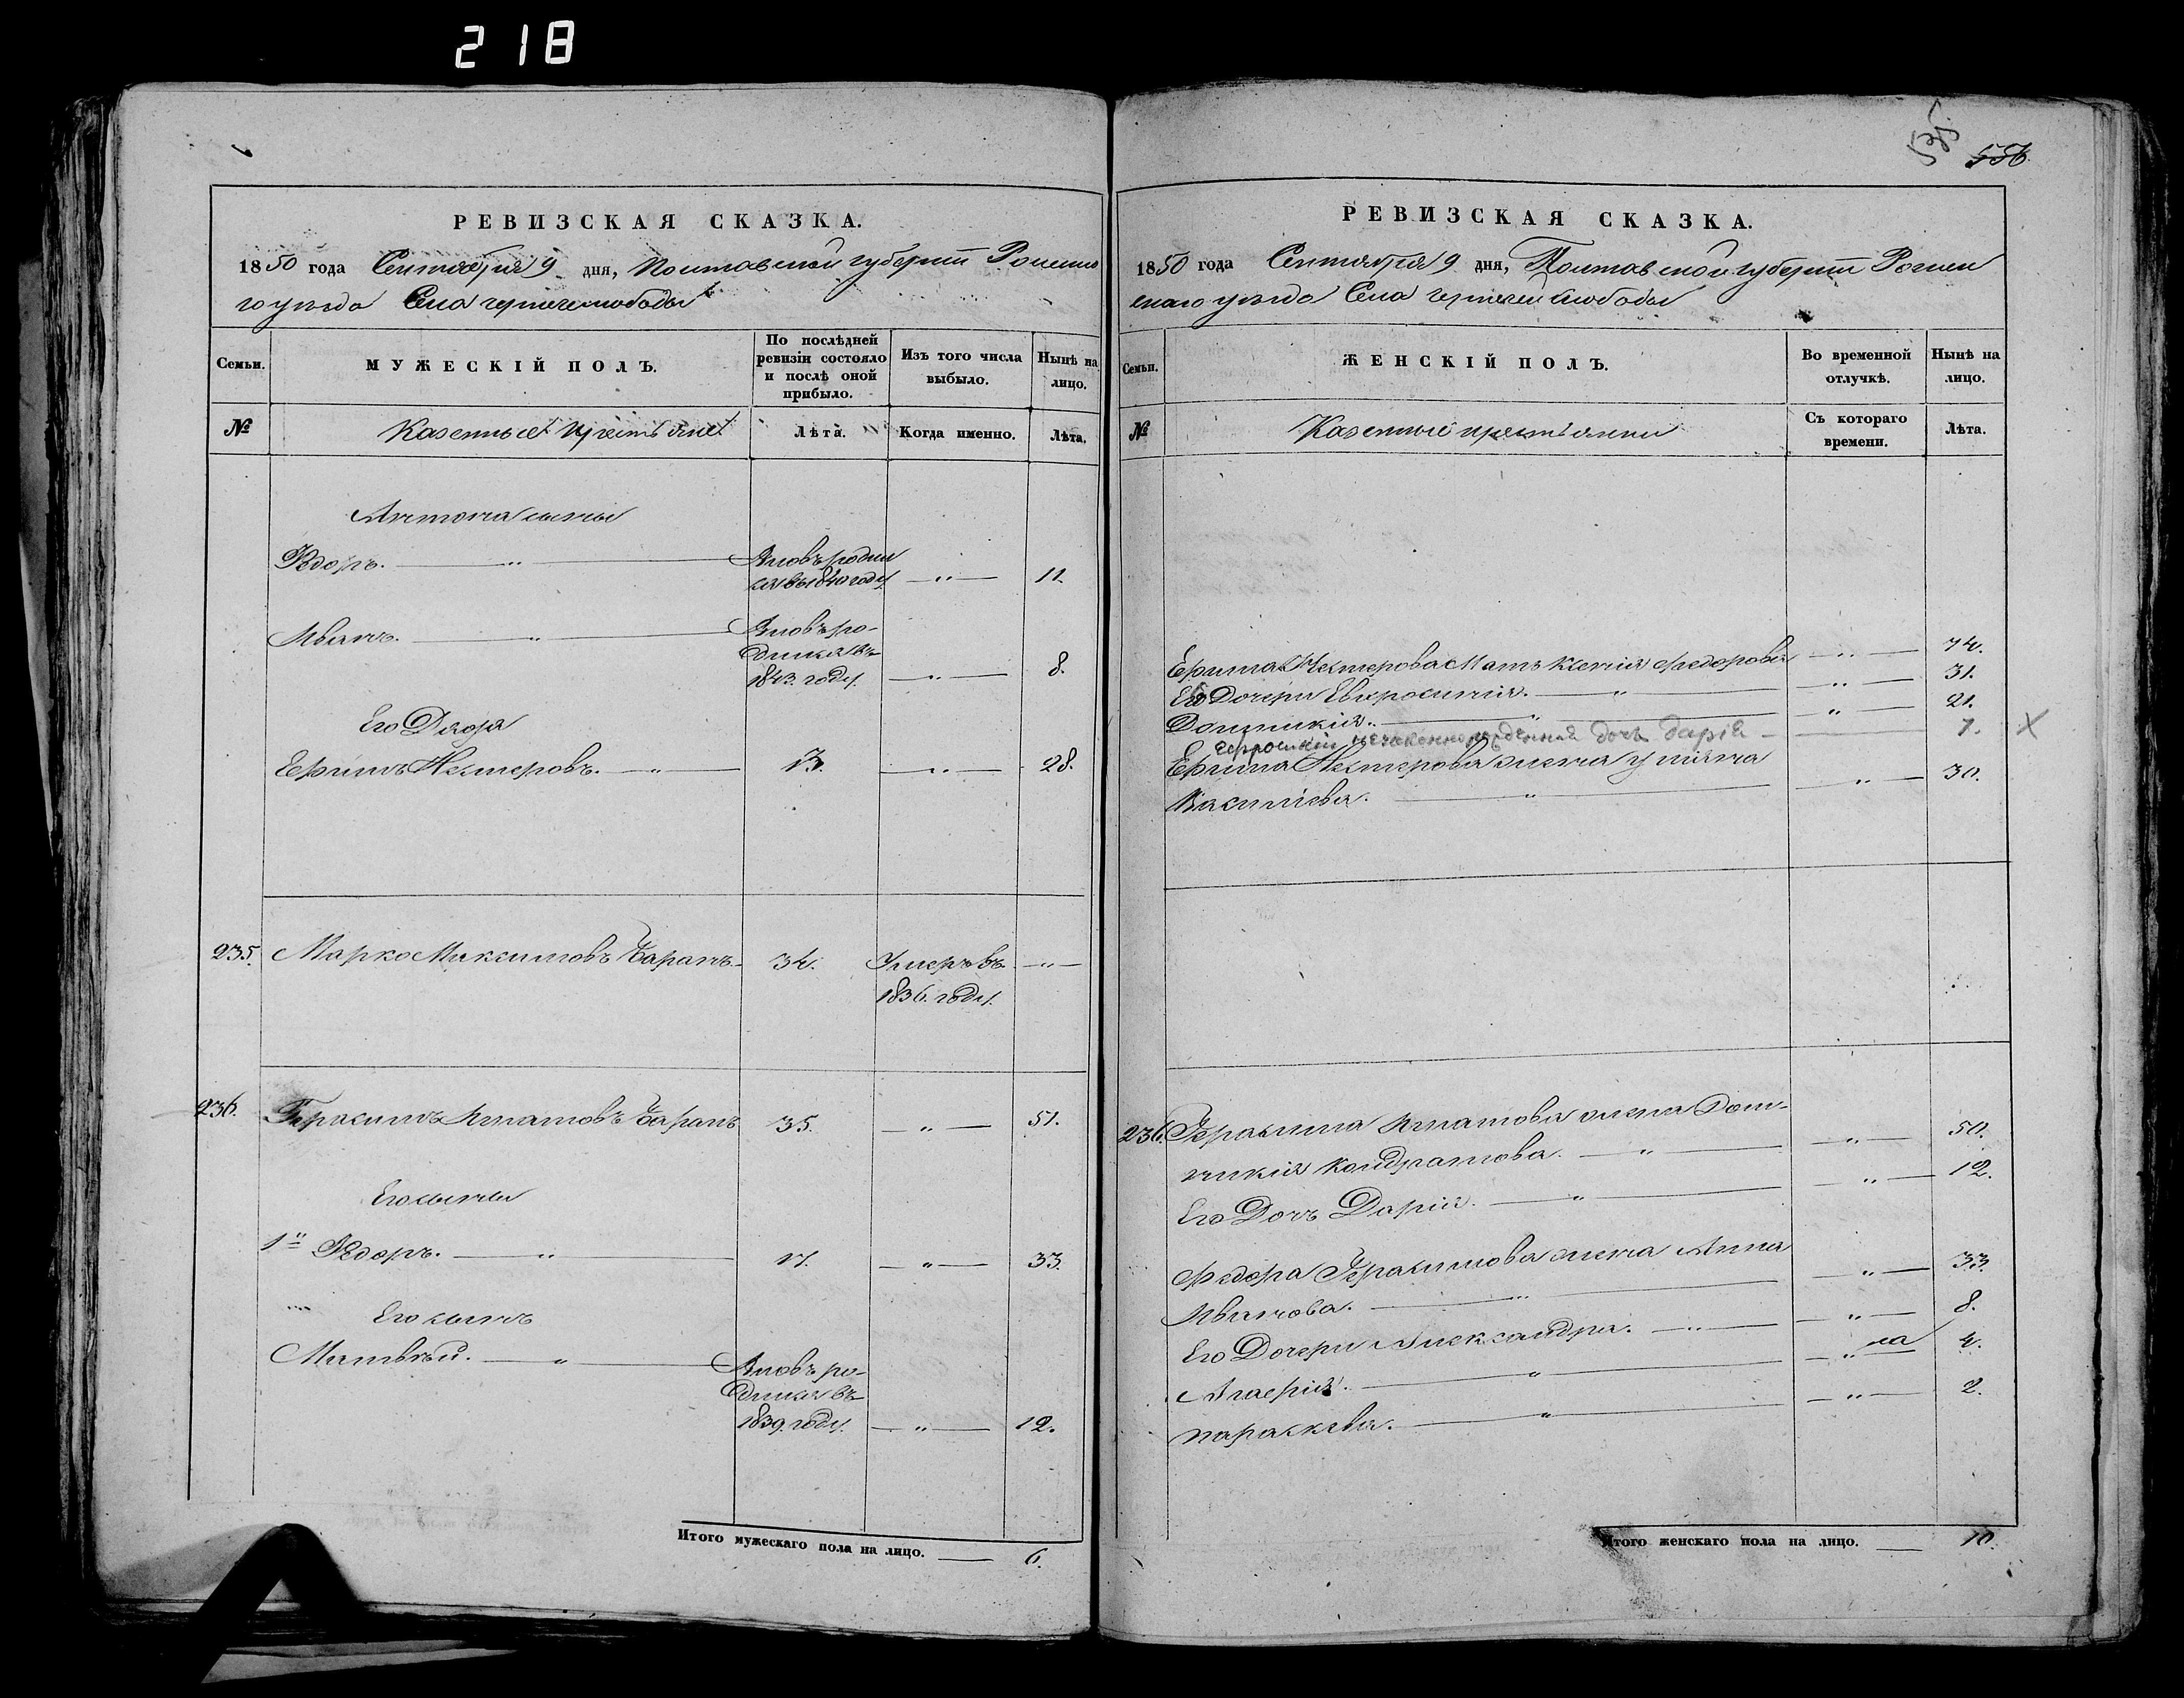 218
РЕВИЗСКАЯ СКАЗКА.
1850 года Сентября 9 дня, Полтавской губернии Роменско
го уезда Села
Семьи.
МУЖЕСКІЙ ПОЛЪ.
По послѣдней ревизіи состояло и послѣ оной прибыло.
Изъ того числа выбыло.
Нынѣ на лицо.
№
Казенные крестьяне
Лѣта.
Когда именно.
Лѣта.
Антона сыны
Ѳедоръ. — " —
Вновь родил
ся въ 1840 году — " — 11.
Иванъ. — " —
Вновь ро-
дился въ
1843. году. — " — 8.
Его Дядя
Ефимъ Нестеровъ. — " — 13. — " — 28.
235. Марко Максимовъ Баранъ. 34. Умеръ въ — " —
1836. году.
236. Герасимъ Игнатовъ Баранъ 35. — " — 51.
Его сыны
1й Ѳедоръ. — " — 17. — " — 33.
Его сынъ
Матвѣй. — " —
Вновь ро-
дился въ
1839. году. — " — 12.
Итого мужескаго пола на лицо. — 6.
535.
556
РЕВИЗСКАЯ СКАЗКА.
1850 года Сентября 9 дня, Полтавской губерніи Ромен
скаго уезда Села слободы
Семьи.
ЖЕНСКІЙ ПОЛЪ.
Во временной отлучкѣ.
Нынѣ на лицо.
№
Казенные крестьянки
Съ котораго времени.
Лѣта.
Ефима Нестерова Мать Ксенія Федорова — " — 74.
Его Дочери Евфросинія. — " — 31.
Домникія. — " — 21.
незаконнорожденная дочь Дарія — 7. X
Ефима Нестерова жена Уліяна
Василіева. — " — 30.
236. Герасима Игнатова жена Дом-
никія Кондратова. — " — 50.
Его Дочь Дарія. — " — 12.
Федора Герасимова жена Анна
Иванова. — " — 33.
Его Дочери Александра. — " — 8.
— " — 4.
Параскева. — " — 2.
Итого женскаго пола на лицо. — 10.